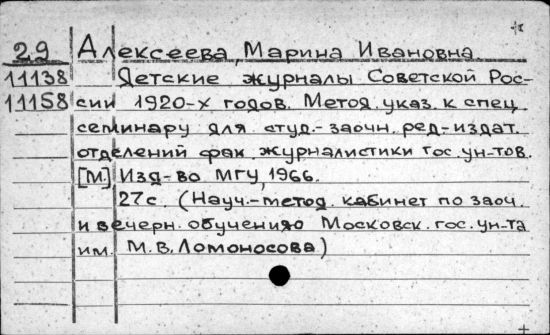 29 Алексеева, Марина Ивановна
11138 Детские журналы Советской Рос-
11158 сии 1920-х годов. Метод. указ. к спец.
семинару для студ.-заочн. ред-издат.
отделений фак. журналистики гос. ун-тов.
[М] Изд-во МГУ, 1966.
27с. (Науч.-метод. кабинет по заоч.
и вечерн. обучению Московск. гос. ун-та
им. М.В. Ломоносова)